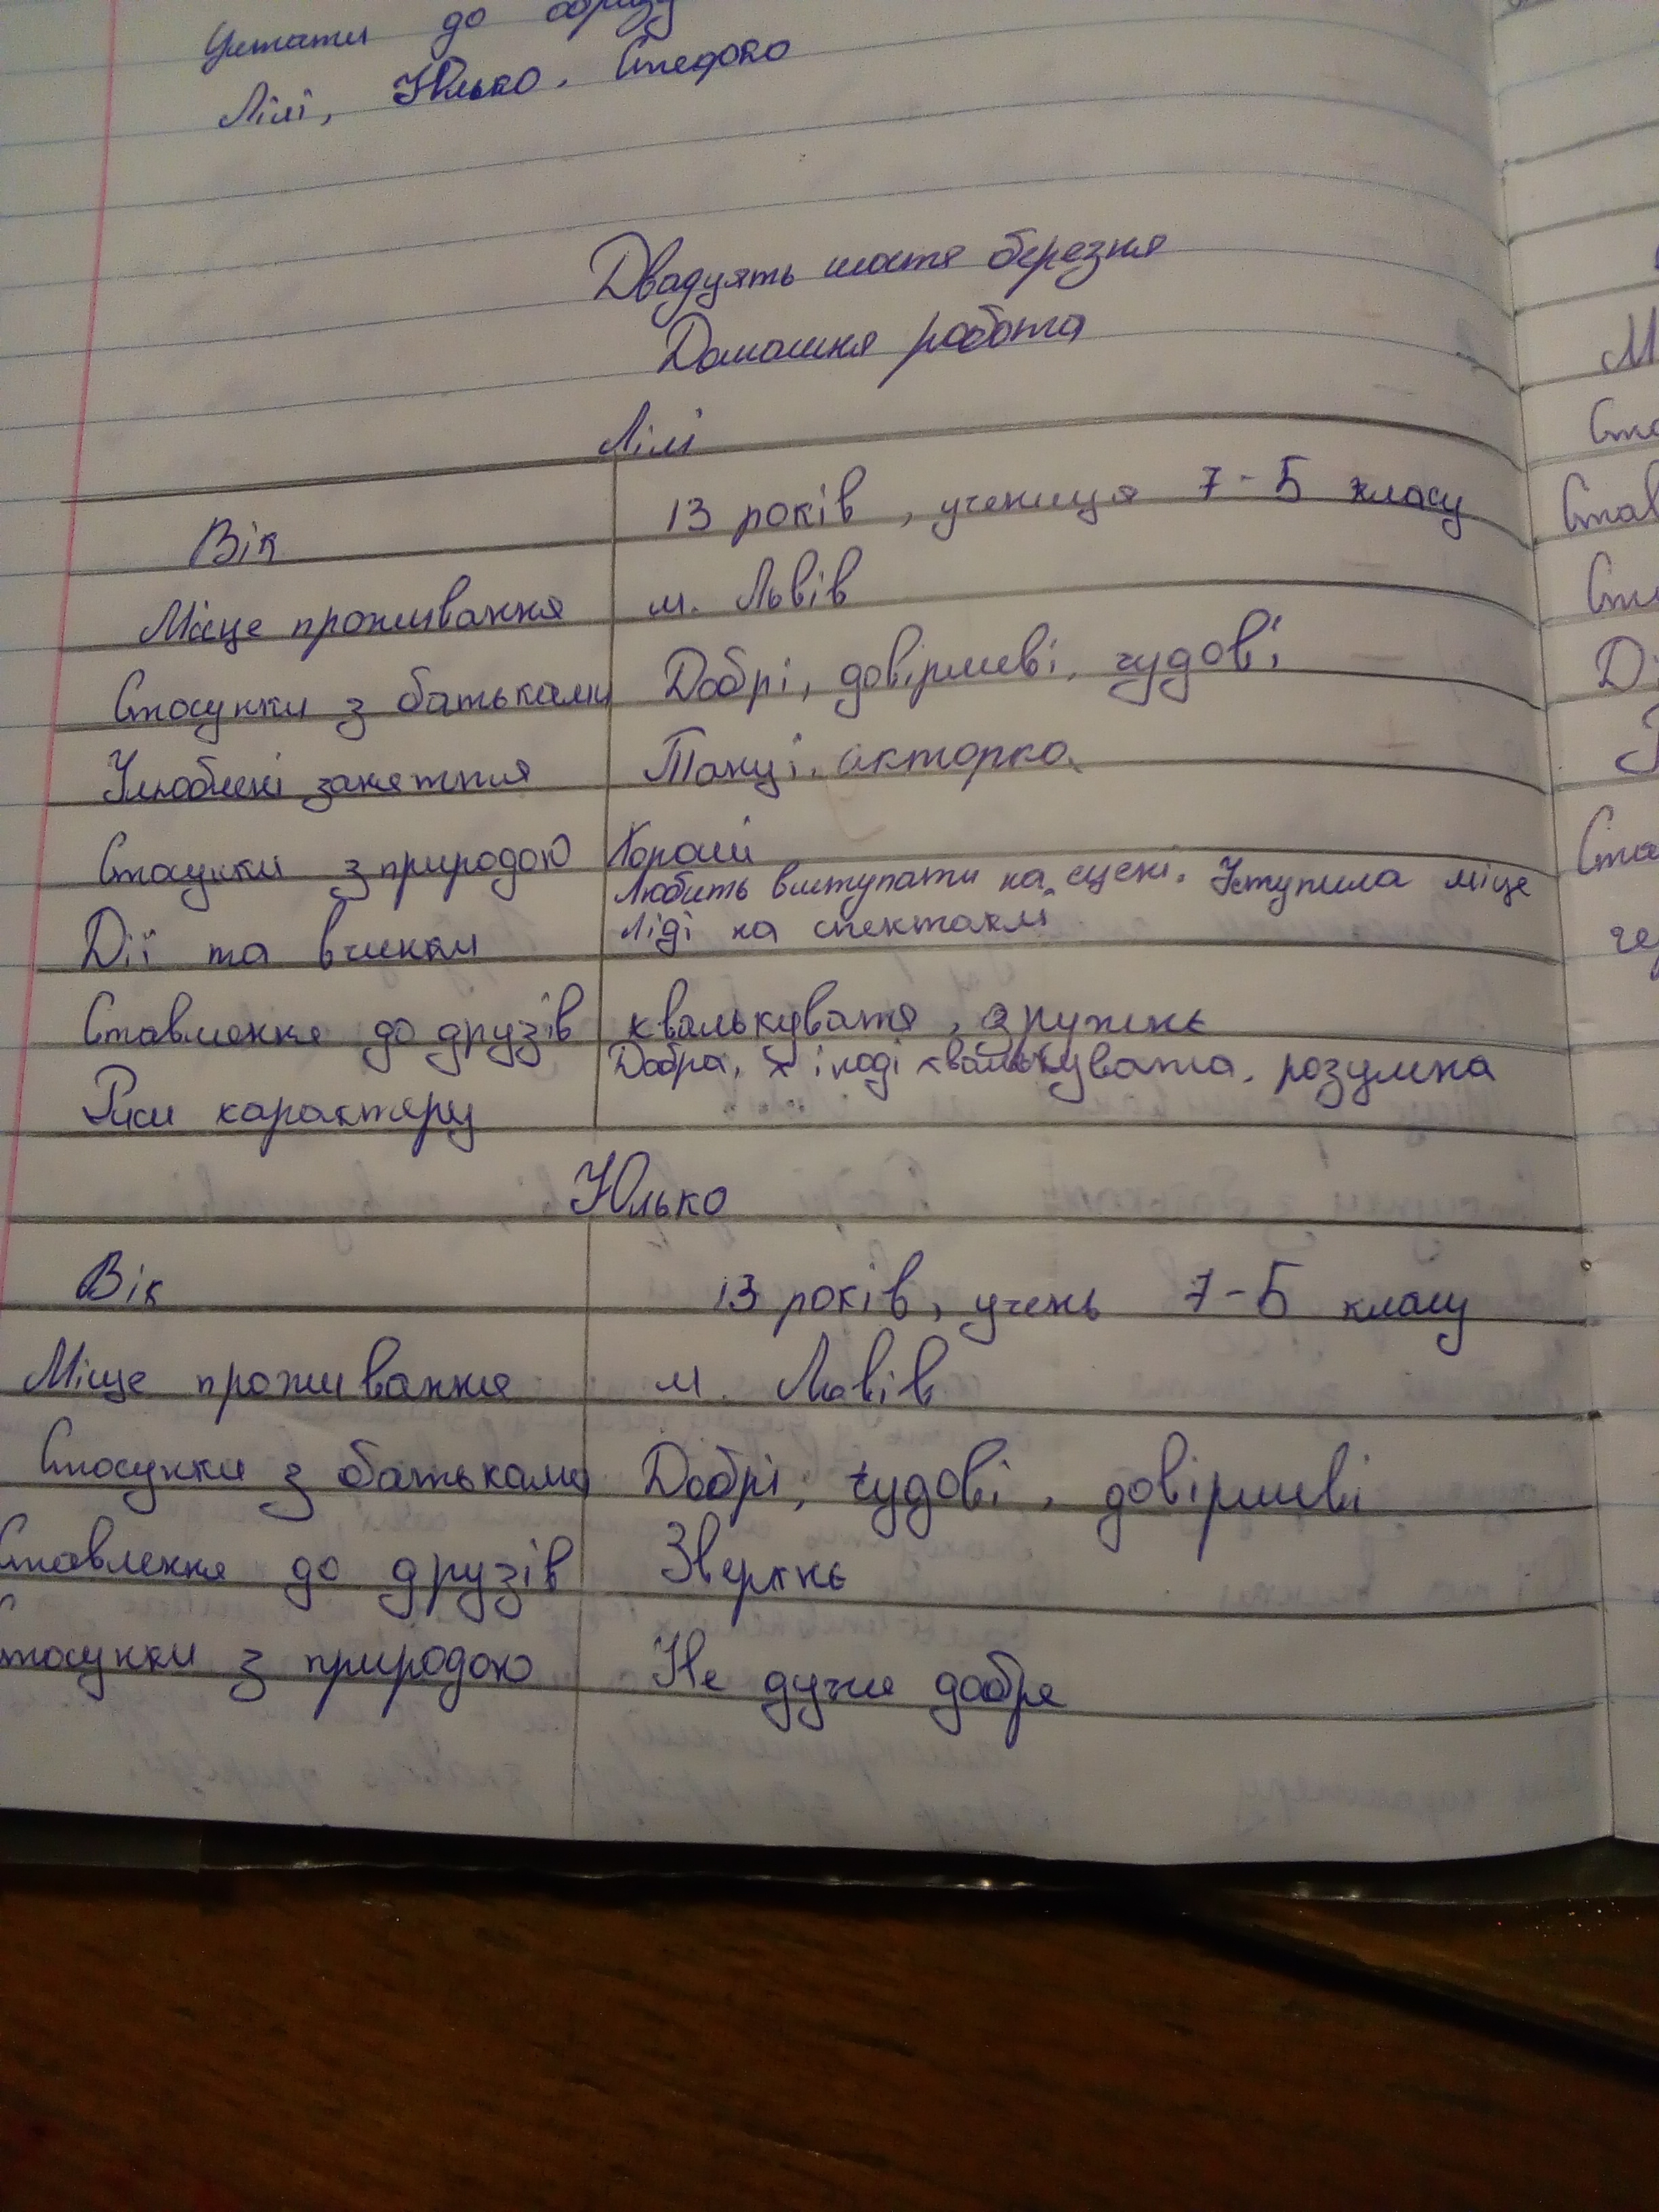 Цитати до образу
Лілі, Юлько. Стефко
Двадцять шосте березня
Домашня робота
Лілі
Вік 13 років, учениця 7-Б класу
Місце проживання м. Львів
Стосунки з батьками Добрі, довірливі, чудові
Улюблені заняття Танці. акторка.
Стосунки з природою Хороші
Любить виступати на сцені. Уступила місце
Дії та вчинки Ліді на спектаклі
Ставлення до друзів хвалькувате, дружнє
Добра, іноді хвалькувата, розумна
Риси характеру
Юлько
Вік 13 років, учень 7-Б класу
Місце проживання м. Львів
Стосунки з батьками Добрі, чудові, довірливі
Ставлення до друзів Зверхнє
Стосунки з природою Не дуже добре